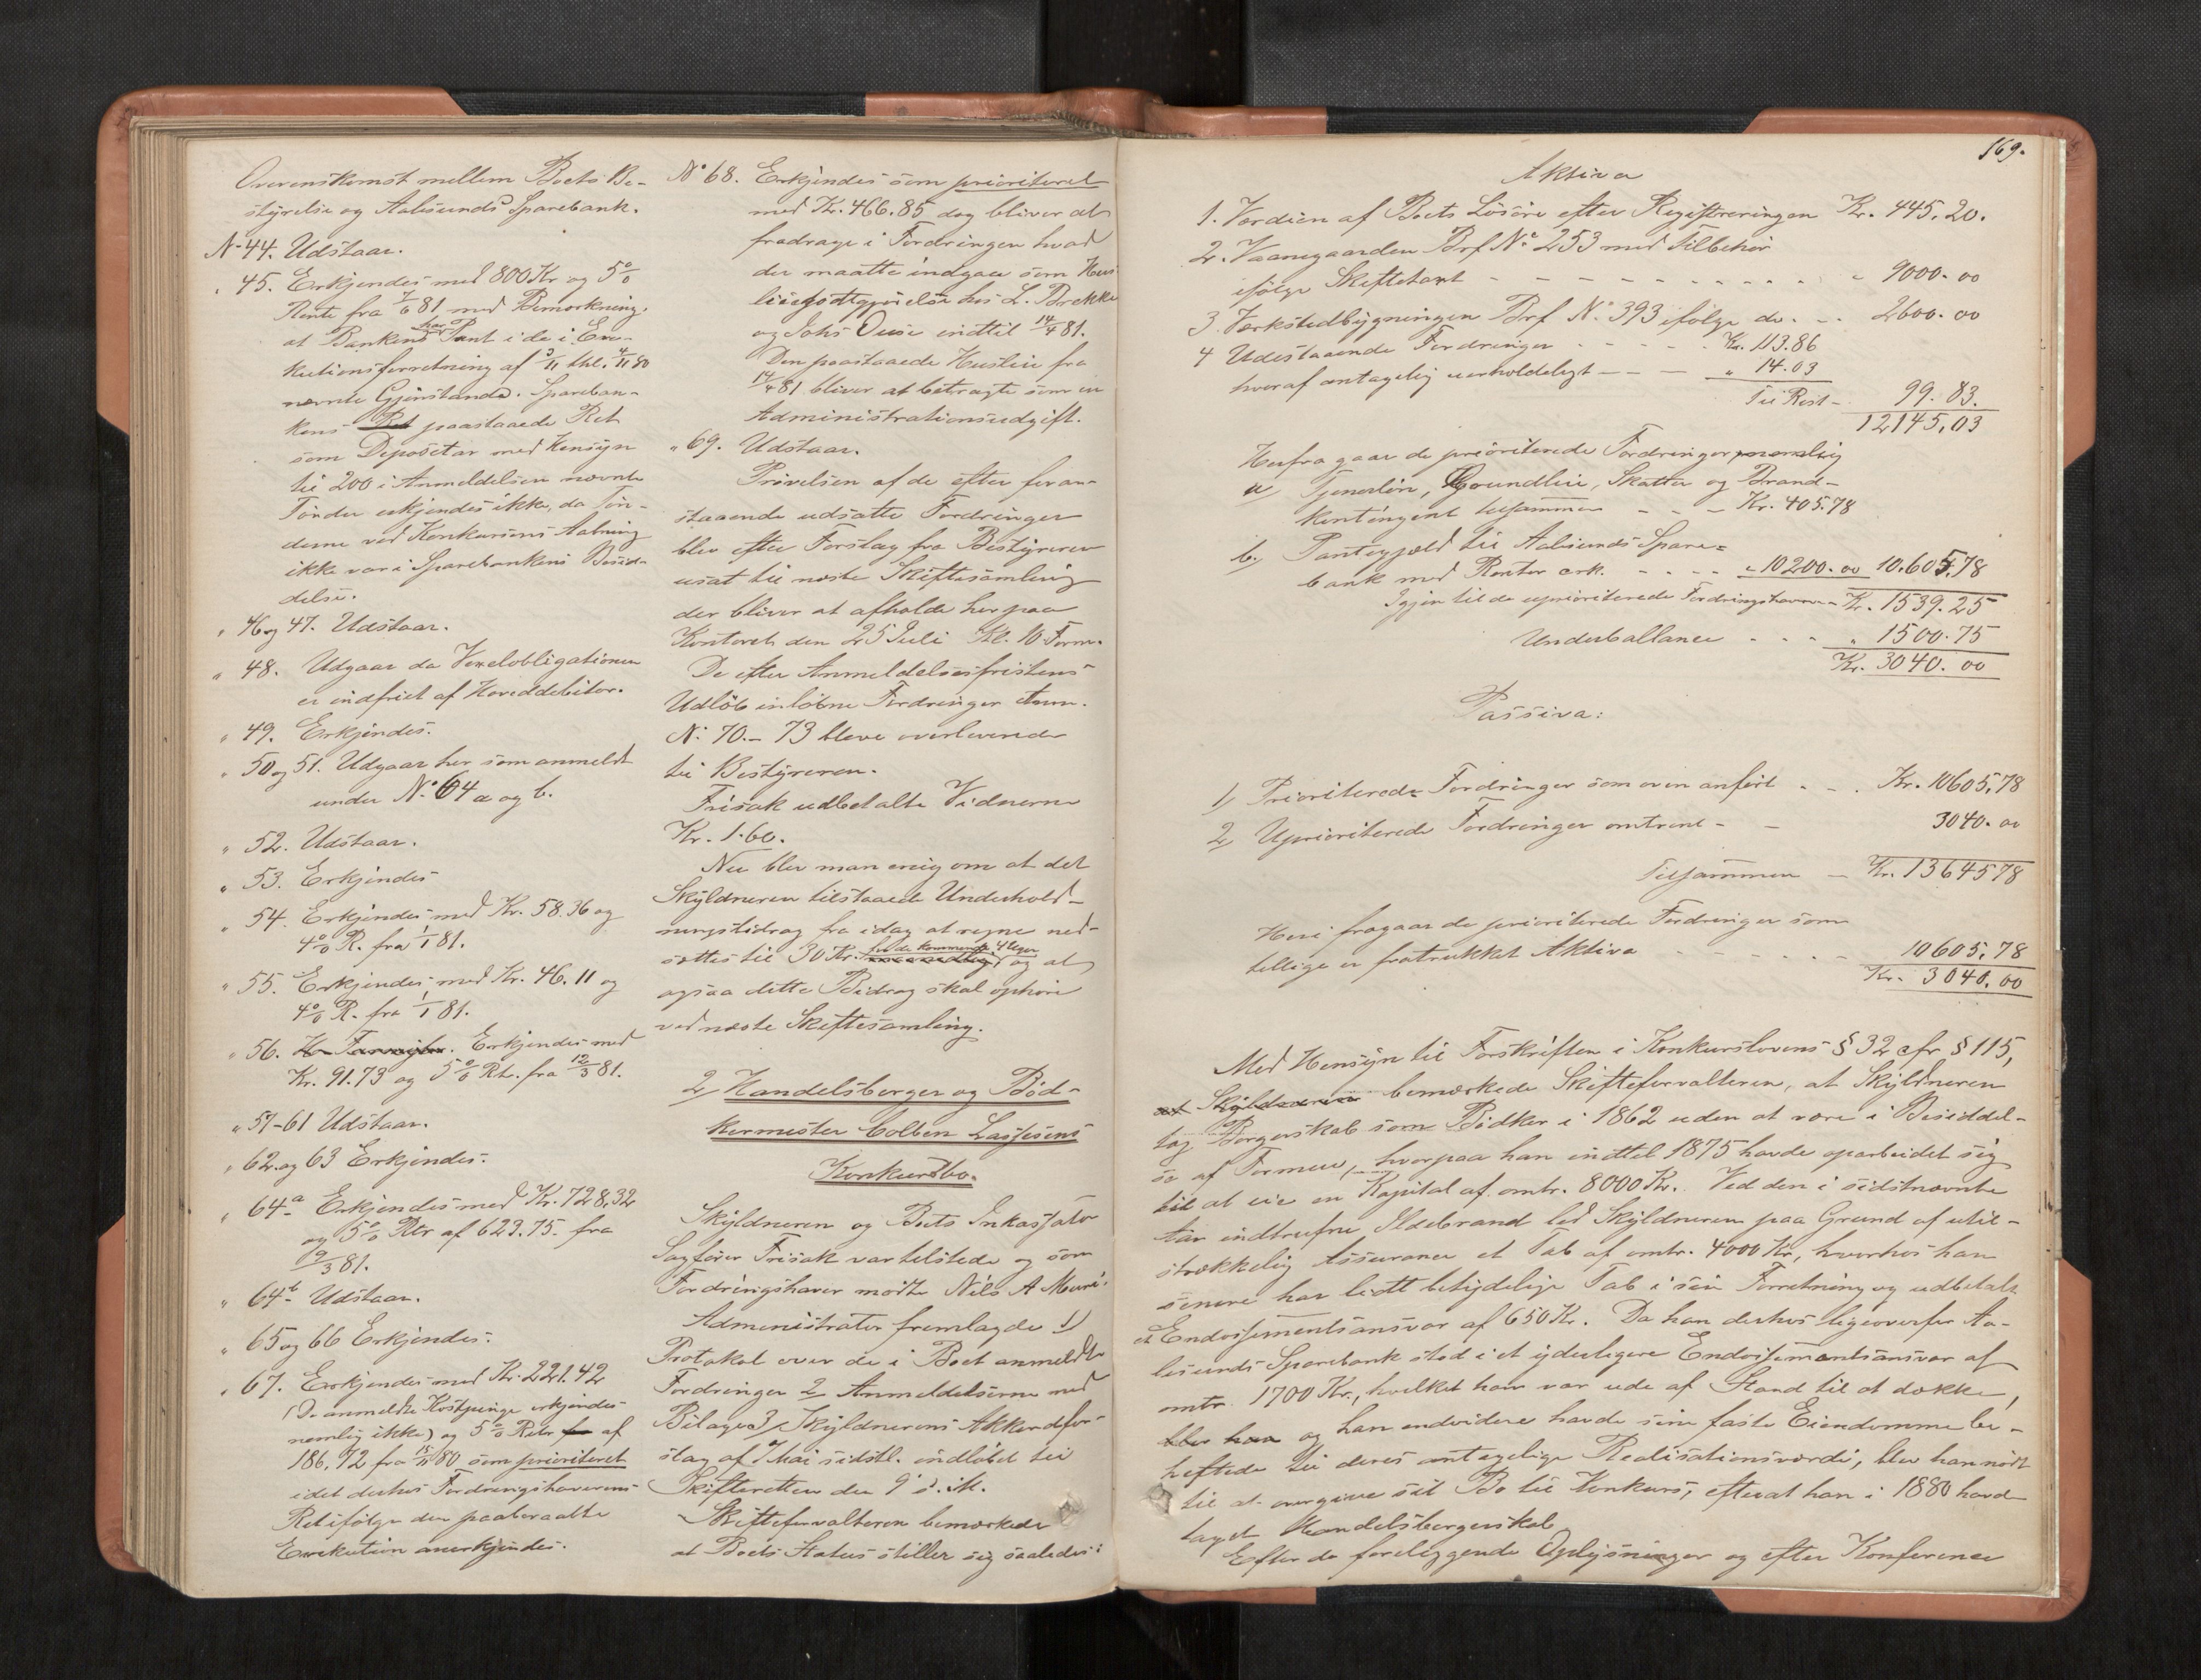 Overenskomst mellem Boets Be-
styrelse og Aalesunds Sparebank.
No 44. Udstaar.
" 45. Erkjendes med 800 Kr og 5%
Rente fra 7/6 81 med Bemærkning.
at Banken har Pant i de i Exe-
kutionsforretning af 3/11 4/11 80
nævnte Gjenstande. Spareban-
kens Ret paastaaede Ret
som Depositar med Hensyn
til 200 i Anmeldelsen nævnte
Tönder erkjendes ikke, da Tön-
derne ved Konkursens Aabning
ikke var i Sparebankens Besid-
delse.
" 46 og 47. Udstaar.
" 48. Udgaar da Vexelobligationen
er indfriet af Hoveddebitor.
" 49. Erkjendes.
" 50 og 51. Udgaar her som anmeldt
under No 64 a og b.
" 52. Udstaar.
" 53. Erkjendes
" 54. Erkjendes med Kr. 58.36 og
4% R. fra 1/1 81.
" 55. Erkjendes med Kr. 46.11 og
4% R. fra 1/1 81.
" 56. Erkjendes med
Kr. 91.73 og 5% Rte. fra 12/3 81.
" 57-61 Udstaar.
" 62. og 63 Erkjendes.
" 64 a Erkjendes med Kr. 728,32
og 5% Rtr af 623.75. fra
9/3 81.
" 64 b Udstaar.
" 65 og 66 Erkjendes.
" 67. Erkjendes med Kr. 221.42
(De anmeldte Kostpenge erkjendes
nemlig ikke) og 5% Rtr af
186,72 fra 15/11 80 som prioriteret
idet derhos Fordringshaverens
Ret ifölge den paaberaabte
Exekution anerkjendes.
No 68. Erkjendes som prioriteret
med Kr. 466.85 dog bliver at
fradrage i Fordringen hvad
der maatte indgaa som Hus-
leiegodtgjörelse hos L. Brekke
og Johs Ouse indtil 14/4 81.
Den paastaaede Husleie fra
14/4 81 bliver at betragte som en
Administrationsudgift.
" 69. Udstaar.
Prövelsen af de efter foran-
staaende udsatte Fordringer
blev efter Forslag fra Bestyreren
usat til næste Skiftesamling
der bliver at afholde her paa
Kontoret den 25 Juli Kl. 10 Form.
De efter Anmeldelsesfristens
Udlöb inlöbne Fordringer Anm.
No 70.- 73 bleve overleverede
til Bestyreren.
Frisak udbetalte Vidnerne
Kr. 1.60.
Nu blev man enig om at det
Skyldneren tilstaaede Underhold-
ningsbidrag fra idag at regne ned-
sættes til 30 Kr. for de kommende 4 Uger maanedlig og at
ogsaa dette Bidrag skal ophöre
ved næste Skiftesamling.
2/ Handelsborger og Böd-
kermester Colben Lassesens
Konkursbo.
Skyldneren og Boets Inkassator
Sagförer Frisak var tilstede og som
Fordringshaver mödte Nils A Muri.
Administrator fremlagde 1/
Protokol over de i Boet anmeldte
Fordringer 2/ Anmeldelserne med
Bilage 3/ Skyldnerens Akkordfor-
slag af 7 Mai sidstl. indlöbet til
Skifteretten den 9 s. M.
Skifteforvalteren bemærkede
at Boets Status stiller sig saaledes:
169.
Aktiva
1. Værdien af Boets Lösöre efter Registreringen Kr. 445,20.
2. Vaanegaarden Brf No 253 med Tilbehör
ifölge Skiftetaxt - - - - - - - - - " 9000.00
3. Værkstedbygningen Brf No 393 ifölge do. - - 2600.00
4 Udestaaende Fordringer - - - - - Kr. 113.86
hvoraf antagelig uerholdeligt - - - " 14.03
Til Rest - 99.83.
12145,03
Herfra gaar de prioriterede Fordringer nemlig
a/ Tjenerlön, Grundleie, Skatter og Brand-
kontingent tilsammen - - - Kr. 405.78
b. Pantegjæld til Aalesunds Spare-
bank med Renter cirk. - - - - " 10200.00 10.605,78
Igjen til de uprioriterede Fordringshavere - Kr. 1539.25
Underballance - - - " 1500.75
Kr. 3040.00
Passiva:
1/ Prioriterede Fordringer som oven anfört - - . Kr. 10605,78
2/ Uprioriterede Fordringer omtrent - - 3040.00
Tilsammen - Kr. 1364578
Heri fragaar de prioriterede Fordringer som
tillige er fratrukket Aktiva - - - - - - 10605,78
Kr. 3040,00
Med Hensyn til Forskriften i Konkurslovens § 32 cfr § 115,
at Skyldneren bemærkede Skifteforvalteren, at Skyldneren
tog Borgerskab som Bödker i 1862 uden at være i Besiddel-
se af Formue, hvorpaa han indtil 1875 havde oparbeidet sig
til at eie en Kapital af omtr. 8000 Kr. Ved den i sidstnævnte
Aar indtrufne Ildebrand led Skyldneren paa Grund af util-
strækkelig Assurance et Tab af omtr. 4000 Kr, hvorhos han
senere har lidt betydelige Tab i sin Forretning og udbetalt
et Endossementsansvar af 650 Kr. Da han derhos ligeoverfor Aa-
lesunds Sparebank stod i et yderligere Endossementsansvar af
omtr. 1700 Kr., hvilket han var ude af Stand til at dække,
blev han og han endvidere havde sine faste Eiendomme be-
heftede til deres antagelige Realisationsværdi, blev han nödt
til at overgive sit Bo til Konkurs, efterat han i 1880 havde
taget Handelsborgerskab.
Efter de foreliggende Oplysninger og efter Konference